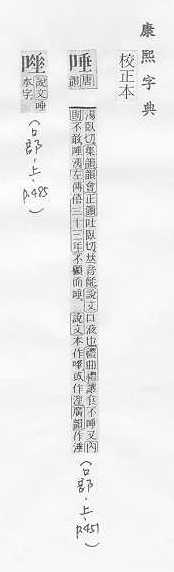 康熙字典
校正本
唾 唐韻 湯臥切集韻韻會正韻吐臥切𠀤音𣩧說文口液也禮曲禮讓食不唾又內則不敢唾洟左傳僖三十三年不顧而唾 說文本作𡄑或作涶廣韻作㴃(口部·上·p.451)
說文唾本字(口部·上·p.485)